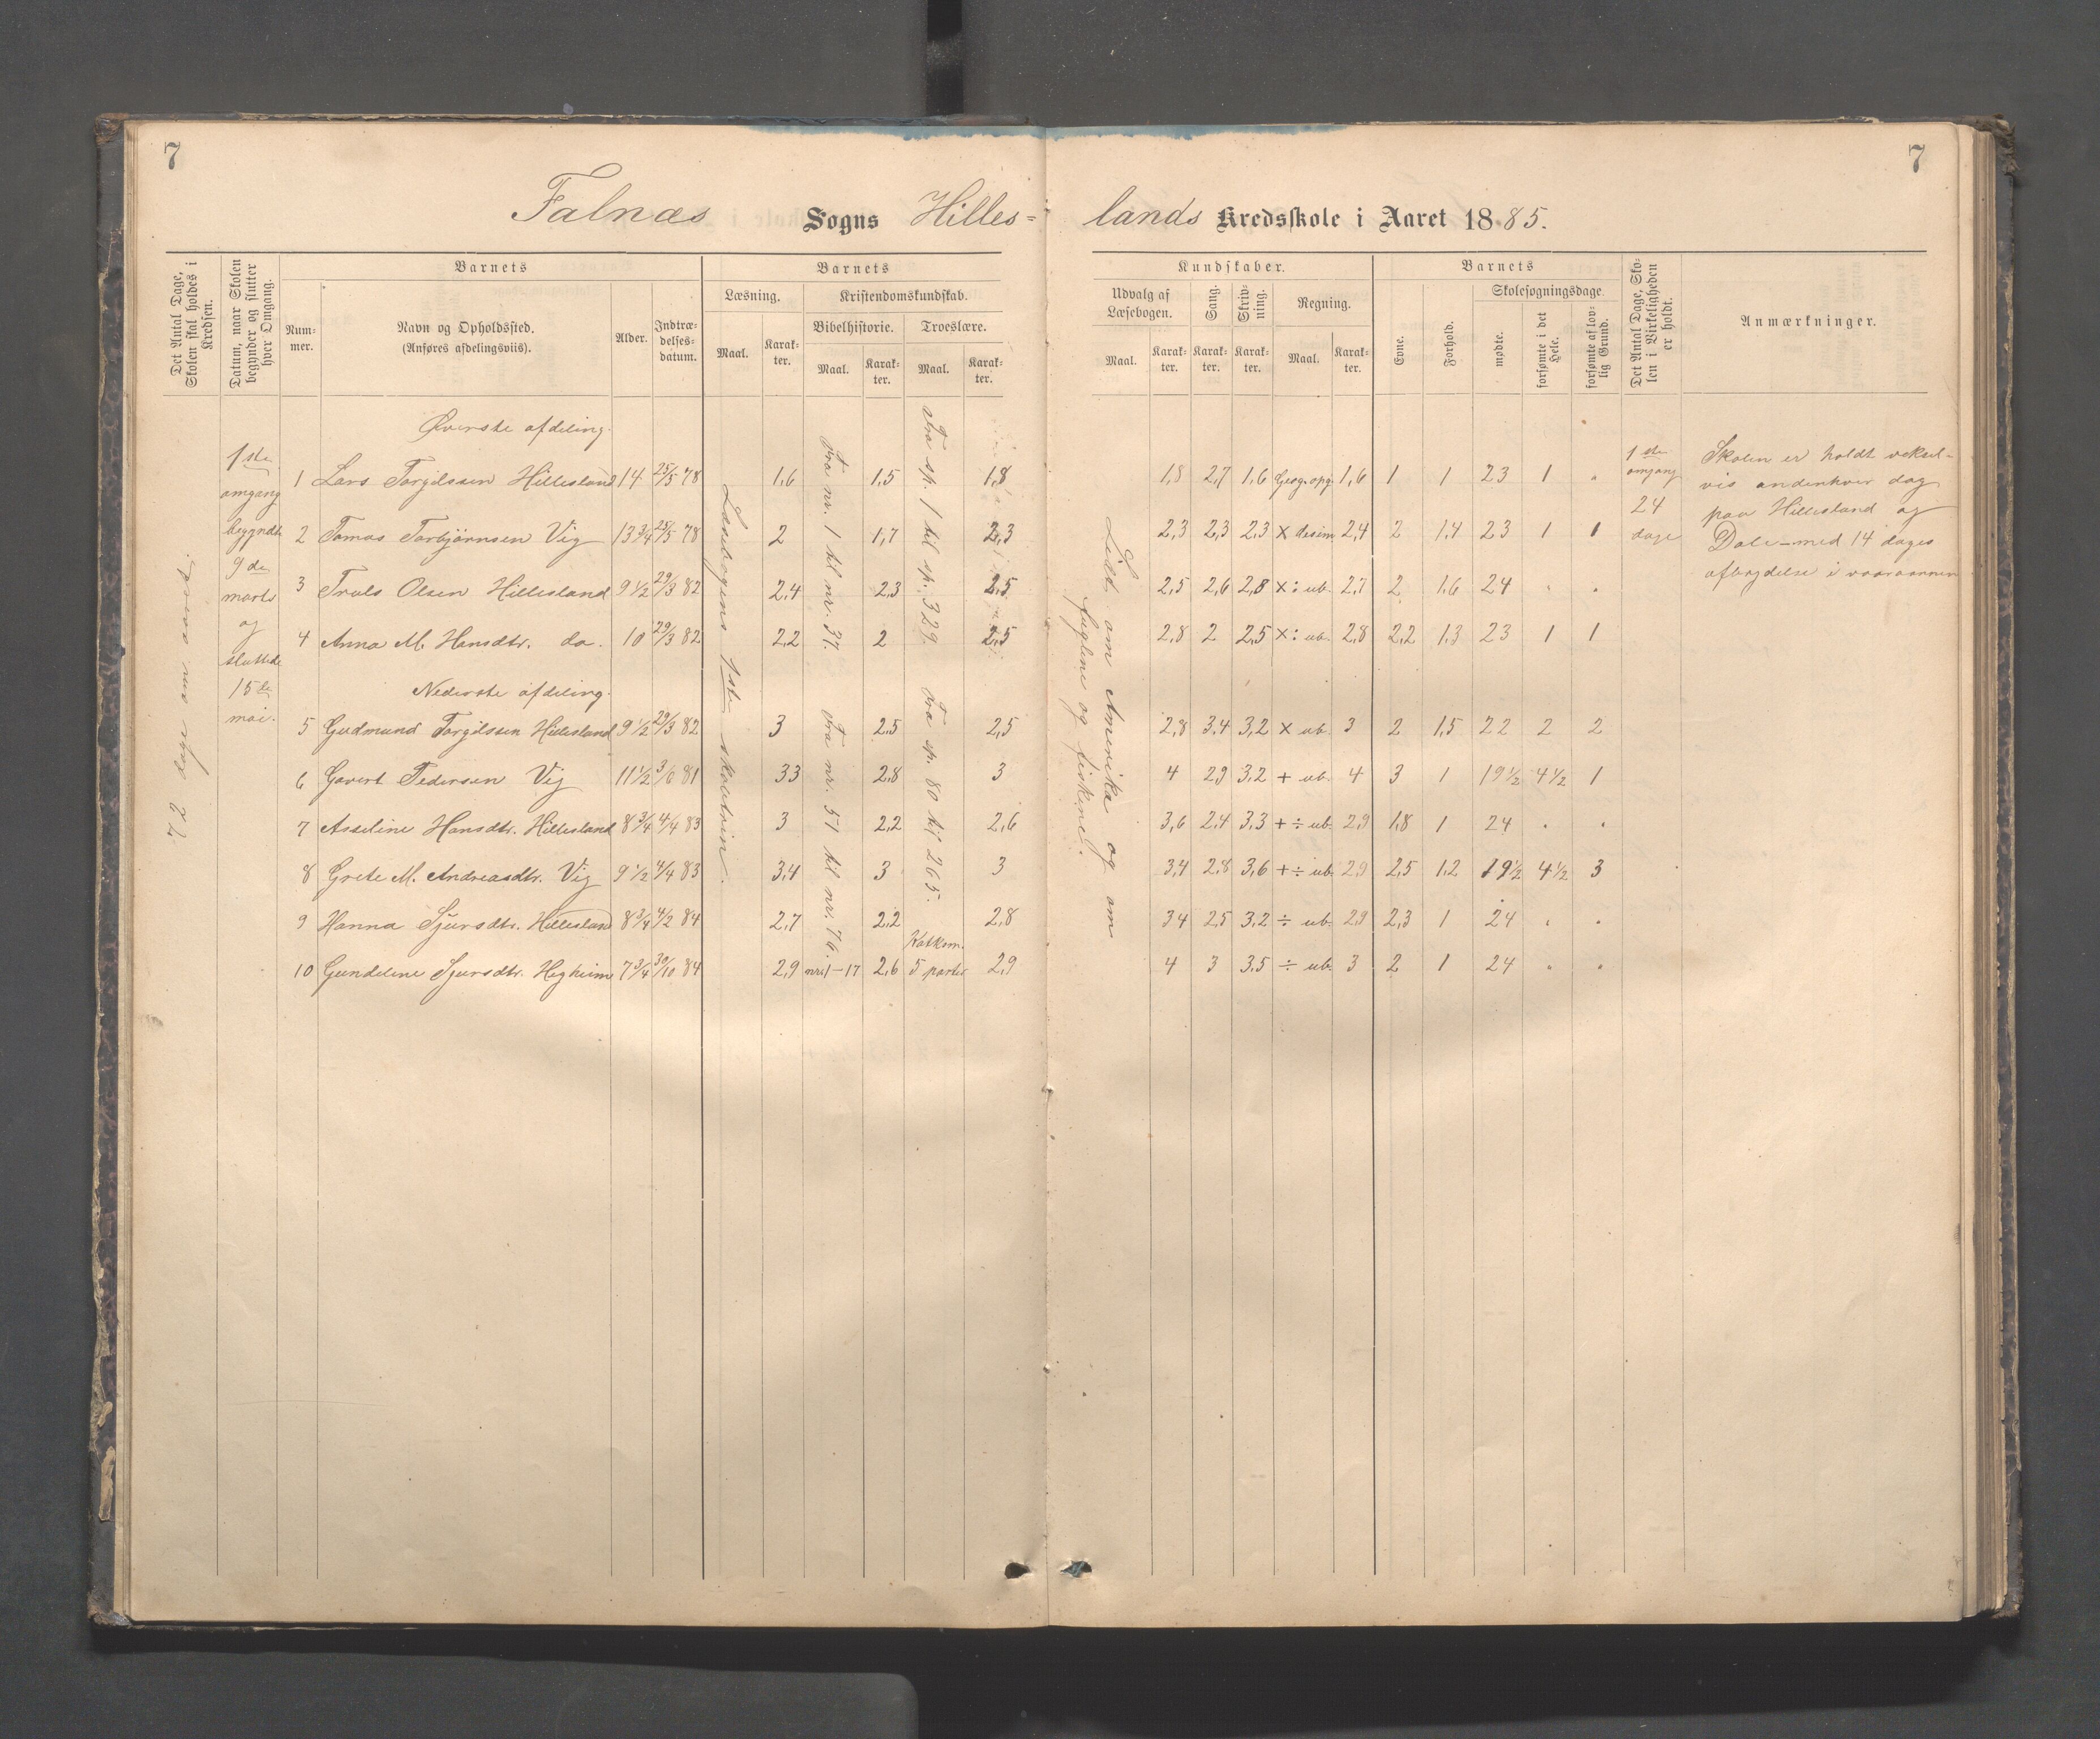 7
7
Falnæs Sogns Hilles=
lands Kredsskole i Aaret 1885.
Det Antal Dage, Skolen skal holdes i Kredsen.
Datum, naar Skolen begynder og slutter hver Omgang.
Barnets
Nummer.
Navn og Opholdssted.
(Anføres afdelingsviis).
Alder.
Indtrædelsesdatum.
Barnets
Læsning.
Maal.
Karakter.
Kristendomskundskab.
Bibelhistorie.
Maal.
Karakter.
Troeslære.
Maal.
Karakter.
Kundskaber.
Udvalg af Læsebogen.
Maal.
Karakter.
Sang.
Karakter.
Skrivning.
Karakter.
Regning.
Maal.
Karakter.
Barnets
Evne.
Forhold.
Skolesøgningsdage.
mødte.
forsømte i det Hele.
forsømte af lovlig Grund.
Det Antal Dage, Skolen i Virkeligheden er holdt.
Anmærkninger.
72 dage om aaret.
1ste
omgang
begyndte
9de
marts
og
sluttede
15de
mai.
Læsebogens 1ste skoletrin.
Fra nr. 1 til nr. 37.
Fra sp. 1 til sp. 329.
Fra nr. 51 til nr. 76.
Fra sp. 80 til 265.
Lidt om Amerika og om
fuglene og fiskene.
Øverste afdeling.
1 Lars Torgilssen Hillesland 14 25/5 78 1,6 1,5 1,8 1,8 2,7 1,6 Geog. opg. 1,6 1 1 23 1 "
2 Tomas Torbjørnsen Vig 13 3/4 25/5 78 2 1,7 2,3 2,3 2,3 2,3 X desim 2,4 2 1,4 23 1 1
3 Truls Olsen Hillesland 9 1/2 29/3 82 2,4 2,3 2,5 2,5 2,6 2,8 X : ub. 2,7 2 1,6 24 " "
4 Anna M. Hansdtr. do. 10 29/3 82 2,2 2 2,5 2,8 2 2,5 X : ub. 2,8 2,2 1,3 23 1 1
Nederste afdeling.
5 Gudmund Torgilssen Hillesland 9 1/2 29/3 82 3 2,5 2,5 2,8 3,4 3,2 X ub. 3 2 1,5 22 2 2
6 Govert Pedersen Vig 11 1/2 3/10 81 3,3 2,8 3 4 2,9 3,2 + ub. 4 3 1 19 1/2 4 1/2 1
7 Asseline Hansdtr. Hillesland 8 3/4 4/4 83 3 2,2 2,6 3,6 2,4 3,3 + ÷ ub. 2,9 1,8 1 24 " "
8 Grete M. Andreasdtr. Vig 9 1/2 4/4 83 3,4 3 3 3,4 2,8 3,6 + ÷ ub. 2,9 2,5 1,2 19 1/2 4 1/2 3
9 Hanna Sjursdtr. Hillesland 8 3/4 4/2 84 2,7 2,2 2,8 3,4 2,5 3,2 ÷ ub. 2,9 2,3 1 24 " "
10 Gundeline Sjursdtr. Hegheim 7 3/4 30/10 84 2,9 nr. 1-17 2,6 Katkism. 5 parter 2,9 4 3 3,5 ÷ ub. 3 2 1 24 " "
1ste
omgang
24
dage
Skolen er holdt veksel-
vis andenhver dag
paa Hillesland og
Dale - med 14 dages
afbrydelse i vaaraannen